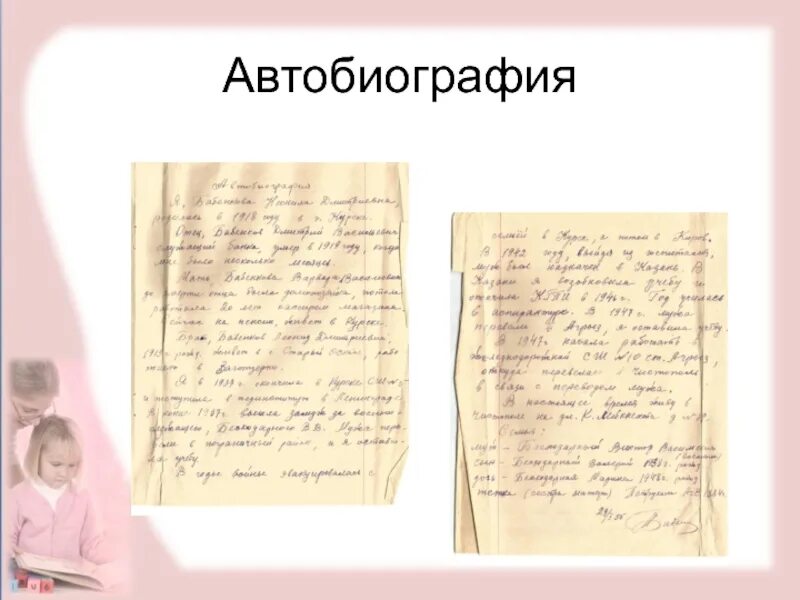 Автобиография
Автобиография
Я, Бабенкова Неонила Дмитриевна,
родилась в 1918 году в г. Курске.
Отец, Бабенков Дмитрий Васильевич
служащий банка, умер в 1919 году, когда
мне было несколько месяцев.
Мать, Бабенкова Варвара Васильевна
до смерти отца была домохозяйка, потом
работала 20 лет кассиром магазина,
сейчас на пенсии, живет в Курске.
Брат, Бабенков Леонид Дмитриевич,
рожд. живет в г. Старый Оскол,
в Заготзерно.
Я в 1937г окончила в Курске СШ
и поступила в пединститут в Ленинграде.
В конце 1937г. вышла замуж за
Безгодарного В.В. Мужа
в пограничный район, и я
учебу.
В годы войны эвакуировалась с
семьей в Курск, а потом в Киров.
В 1942 году, выйдя из госпиталя,
муж был назначен в Казань. В
Казани я возобновила учебу и
окончила КГПИ в 1946г. Год училась
в аспирантуре. В 1947г. мужа
перевели в Агрыз, я оставила учебу.
В 1947г. начала работать в
железнодорожной СШ №10 ст. Агрыз,
откуда перевелась в Чистополь
в связи с переводом мужа.
В настоящее время живу в
Чистополе на ул. К. Либкнехта д
Семья:
муж - Виктор Васильевич
сын - Валерий 1938г рожд
дочь - Марина 1948г. рожд
тетка (сестра матери)